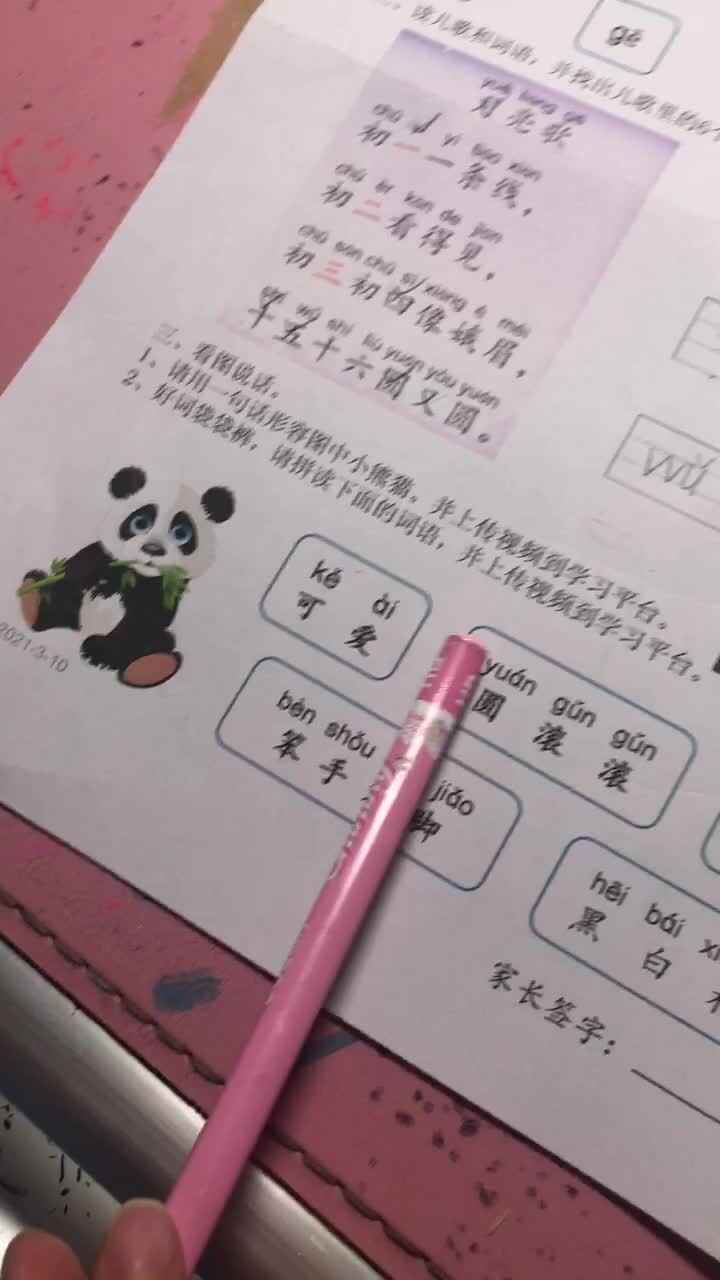 gē
读儿歌和词语，并找出儿歌里的
yuè liang gē
月亮歌
chū yī yì tiáo xiàn
初一一条线，
chū èr kàn de jiàn
初二看得见，
chū sān chū sì xiàng é méi
初三初四像娥眉，
shí wǔ shí liù yuán yòu yuán
十五十六圆又圆。
三、看图说话。
1、请用一句话形容图中小熊猫。并上传视频到学习平台。
2、好词袋袋裤，请拼读下面的词语，并上传视频到学习平台。
kě ài
可爱
yuán gǔn gǔn
圆滚滚
bèn shǒu jiǎo
笨手 脚
hēi bái
黑白
wǔ
2021-3-10
家长签字：